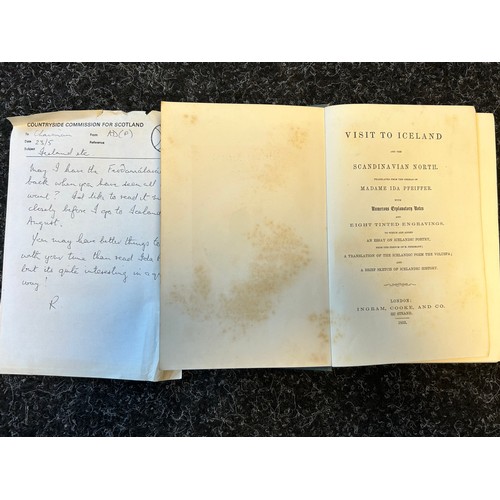 COUNTRYSIDE COMMISSION FOR SCOTLAND
To Chairman From AD(P)
Date 23/5 Reference
Subject Iceland etc
May I have the
back when you have seen all
want? I'd like to read it
closely before I go to Iceland
August.
You may have better things to
with your time than read Ida
but its quite interesting in a
way!
R
VISIT TO ICELAND
AND THE
SCANDINAVIAN NORTH.
TRANSLATED FROM THE GERMAN OF
MADAME IDA PFEIFFER.
WITH
Numerous Explanatory Notes
AND
EIGHT TINTED ENGRAVINGS.
TO WHICH ARE ADDED
AN ESSAY ON ICELANDIC POETRY,
FROM THE FRENCH OF M. BERGMANN;
A TRANSLATION OF THE ICELANDIC POEM THE VOLUSPA;
AND
A BRIEF SKETCH OF ICELANDIC HISTORY.
LONDON:
INGRAM, COOKE, AND CO.
STRAND.
1852.